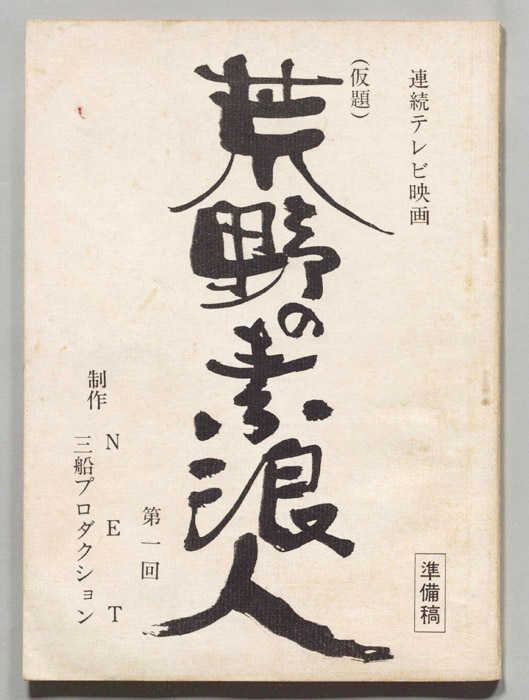 連続テレビ映画
(仮題)
荒野の素浪人
第一回
制作
NET
三船プロダクション
準備稿